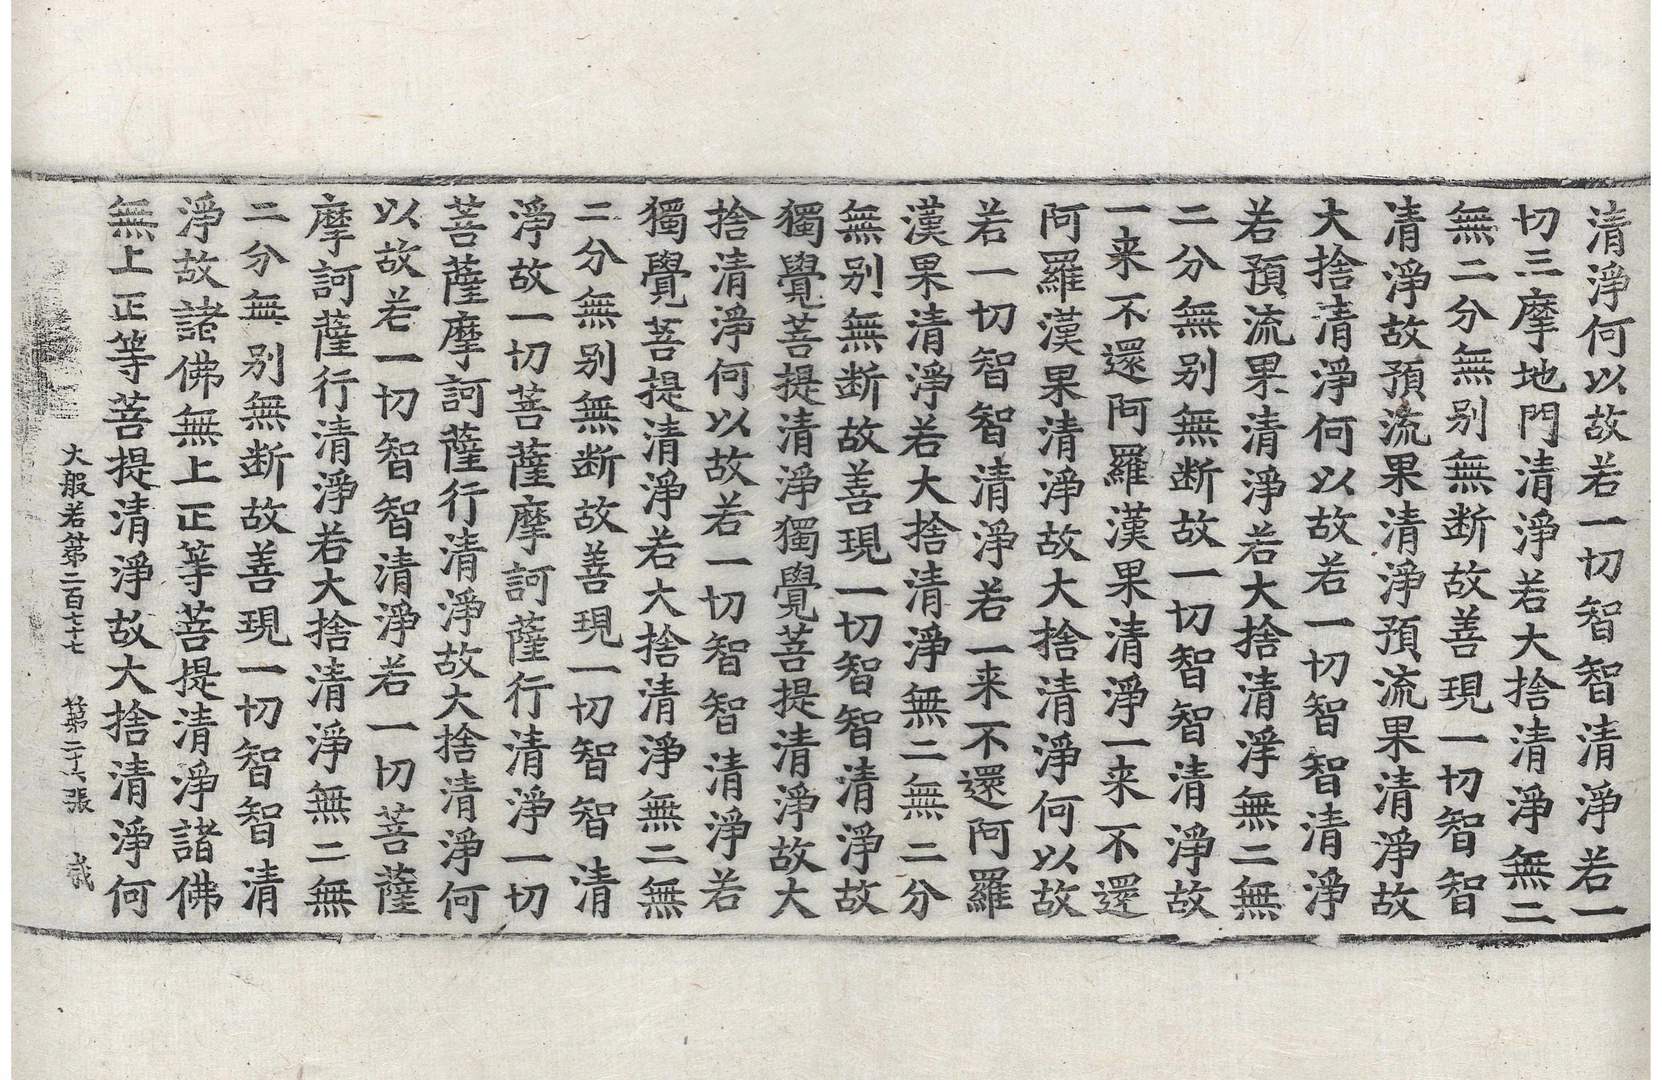 清淨何以故若一切智智清淨若一
切三摩地門清淨若大捨清淨無二
無二分無别無断故善現一切智智
清淨故預流果清淨預流果清淨故
大捨清淨何以故若一切智智清淨
若預流果清淨若大捨清淨無二無
二分無别無断故一切智智清淨故
一来不還阿羅漢果清淨一来不還
阿羅漢果清淨故大捨清淨何以故
若一切智智清淨若一来不還阿羅
漢果清淨若大捨清淨無二無二分
無别無断故善現一切智智清淨故
獨覺菩提清淨獨覺菩提清淨故大
捨清淨何以故若一切智智清淨若
獨覺菩提清淨若大捨清淨無二無
二分無别無断故善現一切智智清
淨故一切菩薩摩訶薩行清淨一切
菩薩摩訶薩行清淨故大捨清淨何
以故若一切智智清淨若一切菩薩
摩訶薩行清淨若大捨清淨無二無
二分無别無断故善現一切智智清
淨故諸佛無上正等菩提清淨諸佛
無上正等菩提清淨故大捨清淨何
大般若第二百七十七 第二十六張